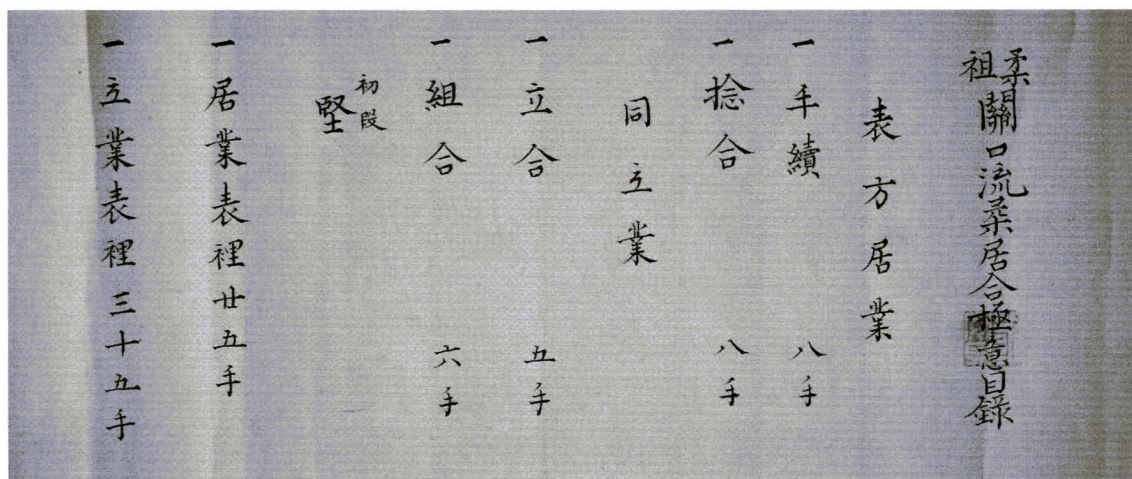 柔祖關口流柔居合極意目錄
表方居業
一手續 八手
一捻合 八手
同立業
一立合 五手
一組合 六手
初段
堅
一居業表裡廿五手
一立業表裡三十五手